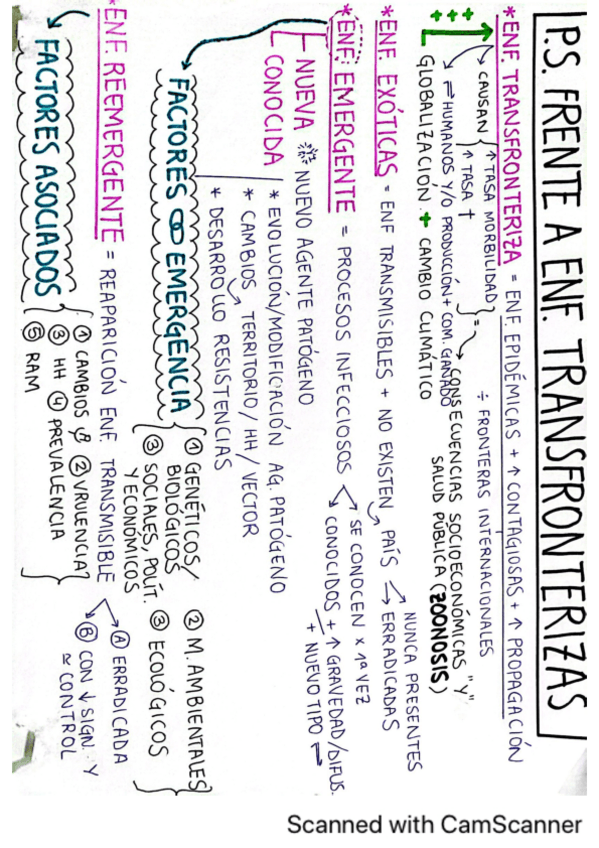 P.S. FRENTE A ENF. TRANSFRONTERIZAS
*ENF. TRANSFRONTERIZA = ENF. EPIDÉMICAS + ↑ CONTAGIOSAS + ↑ PROPAGACIÓN
÷ FRONTERAS INTERNACIONALES
→ CAUSAN { ↑ TASA MORBILIDAD
↑ TASA †
} = → CONSECUENCIAS SOCIOECONÓMICAS "Y"
SALUD PÚBLICA (ZOONOSIS)
→ ⇌ HUMANOS Y/O PRODUCCIÓN + COM. GANADO
GLOBALIZACIÓN + CAMBIO CLIMÁTICO
*ENF. EXÓTICAS = ENF TRANSMISIBLES + NO EXISTEN → PAÍS
→ NUNCA PRESENTES
→ ERRADICADAS
*ENF. EMERGENTE = PROCESOS INFECCIOSOS
→ SE CONOCEN X 1ª VEZ
→ CONOCIDOS + ↑ GRAVEDAD/DIFUS.
+ NUEVO TIPO ⇌
NUEVA NUEVO AGENTE PATÓGENO
CONOCIDA
* EVOLUCIÓN/MODIFICACIÓN AG. PATÓGENO
* CAMBIOS → TERRITORIO/HH/VECTOR
* DESARROLLO RESISTENCIAS
→ FACTORES ∞ EMERGENCIA
① GENÉTICOS/BIOLÓGICOS
② M. AMBIENTALES
③ SOCIALES, POLÍT. Y ECONÓMICOS
③ ECOLÓGICOS
*ENF. REEMERGENTE = REAPARICIÓN ENF TRANSMISIBLE
Ⓐ ERRADICADA
Ⓑ CON ↓ SIGN. Y
≃ CONTROL
→ FACTORES ASOCIADOS
① CAMBIOS ② VIRULENCIA
③ HH ④ PREVALENCIA
⑤ RAM
Scanned with CamScanner